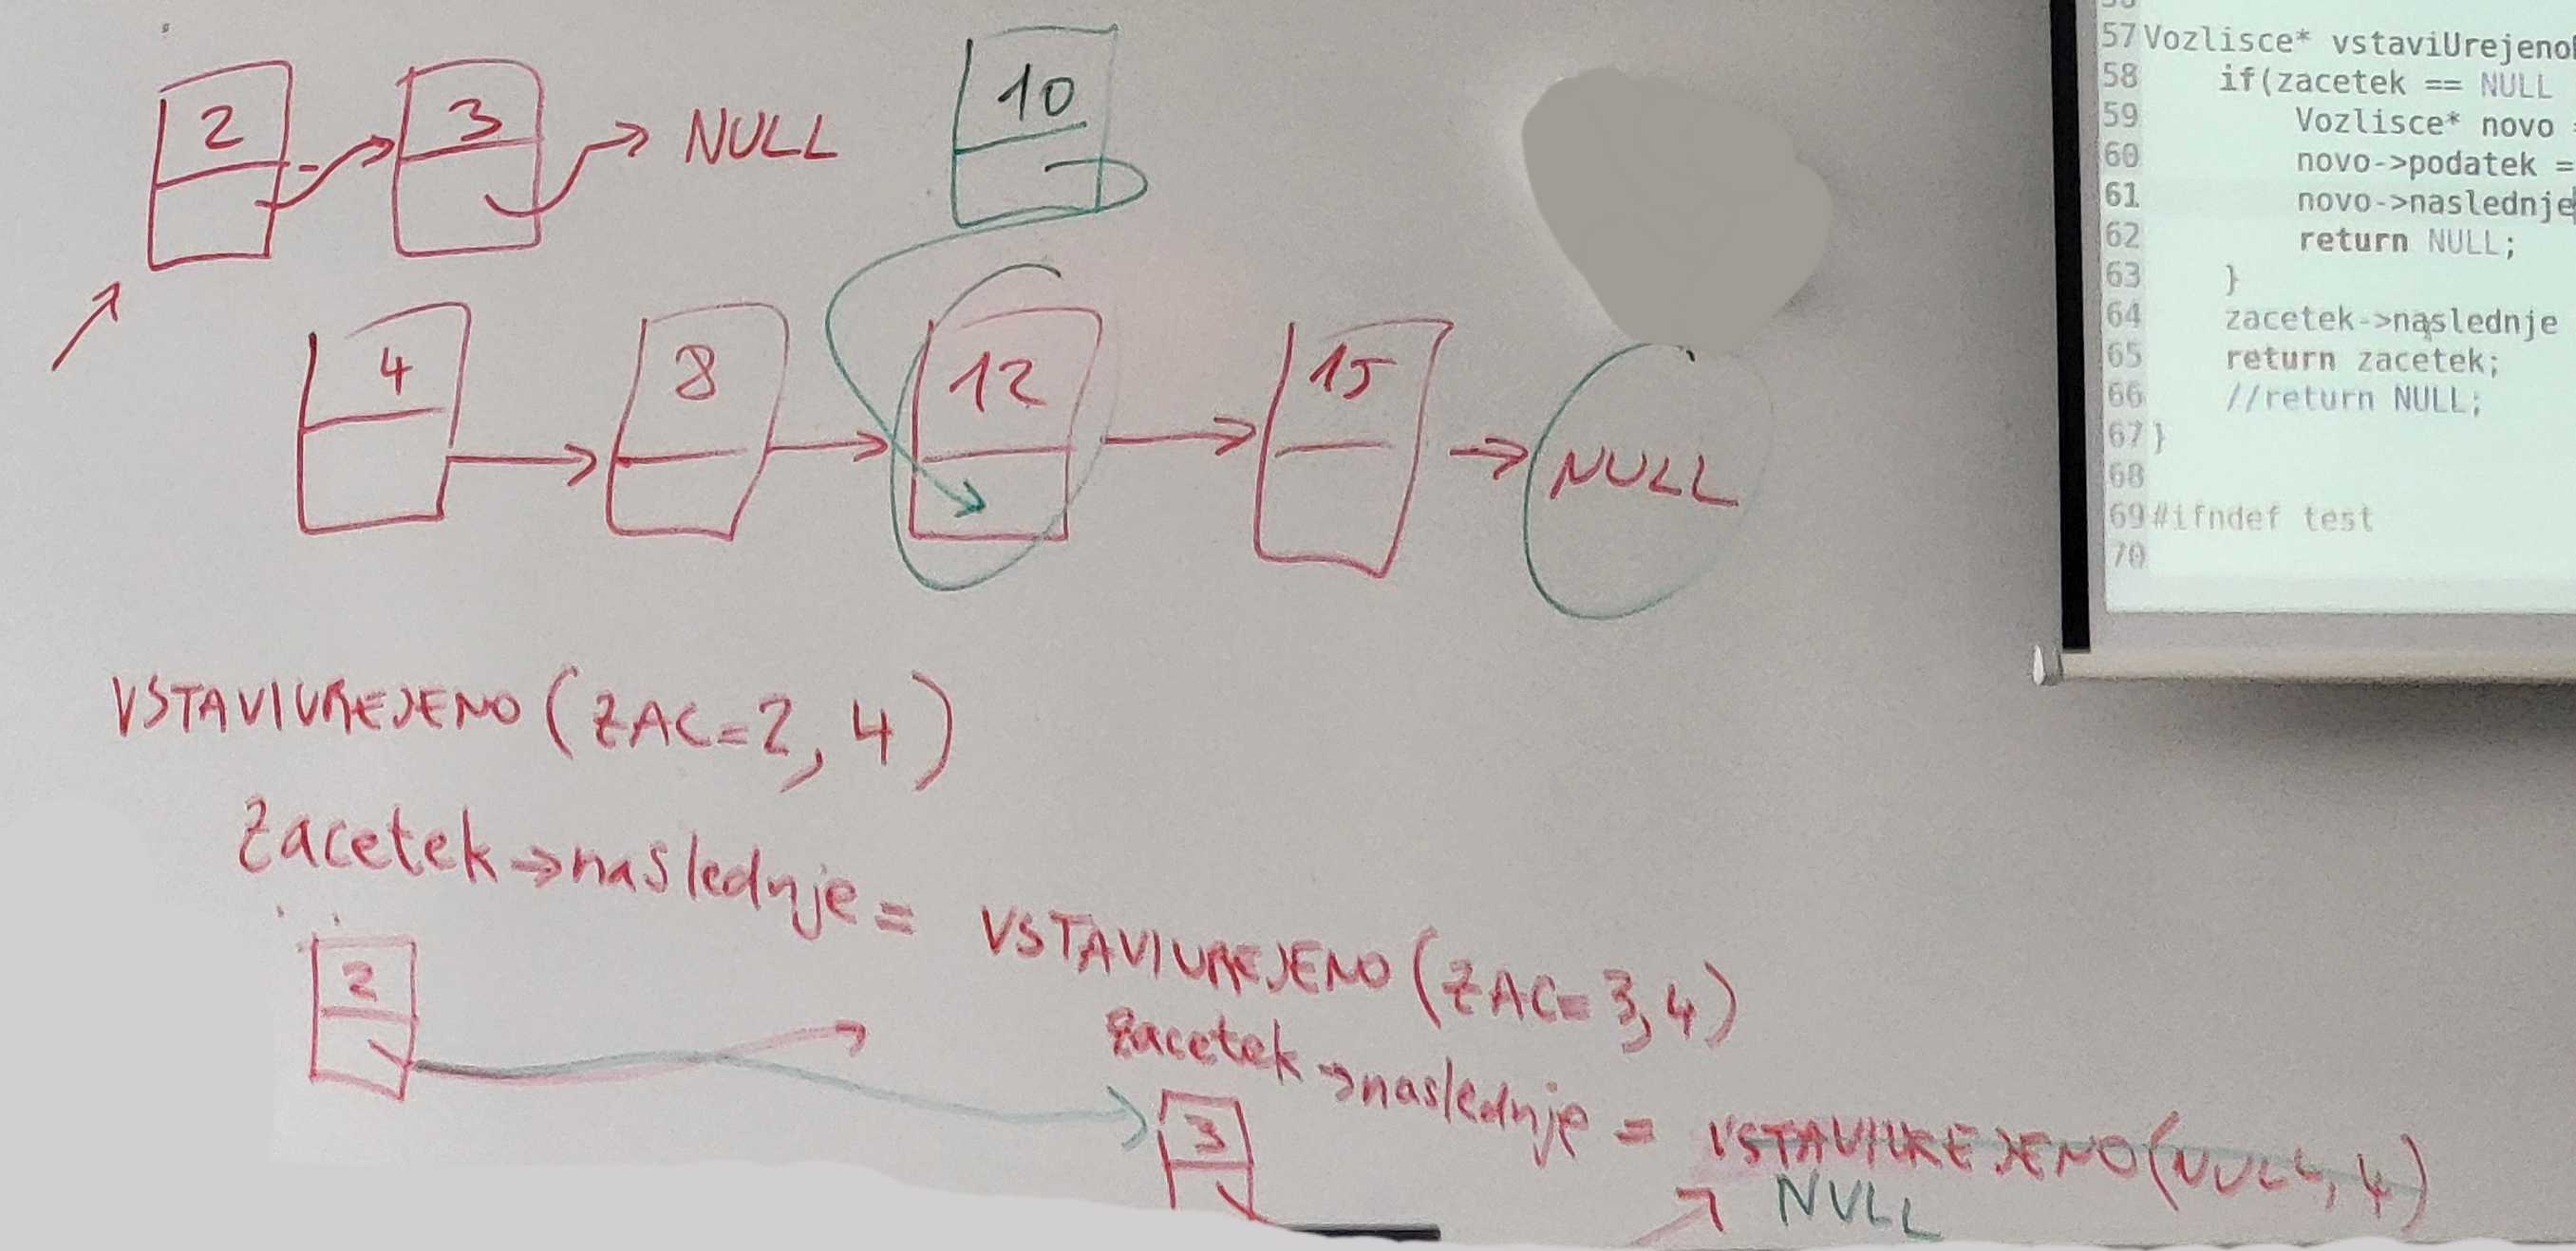 2 3 NULL
10
4 8 12 15 NULL
VSTAVIUREJENO (ZAC=2, 4)
Zacetek->naslednje = VSTAVIUREJENO (ZAC=3, 4)
2
zacetek->naslednje = VSTAVIUREJENO (NULL, 4)
3
NULL
57 Vozlisce* vstaviUrejeno
58 if(zacetek == NULL
59 Vozlisce* novo =
60 novo->podatek =
61 novo->naslednje
62 return NULL;
63 }
64 zacetek->naslednje
65 return zacetek;
66 //return NULL;
67 }
68
69 #ifndef test
70